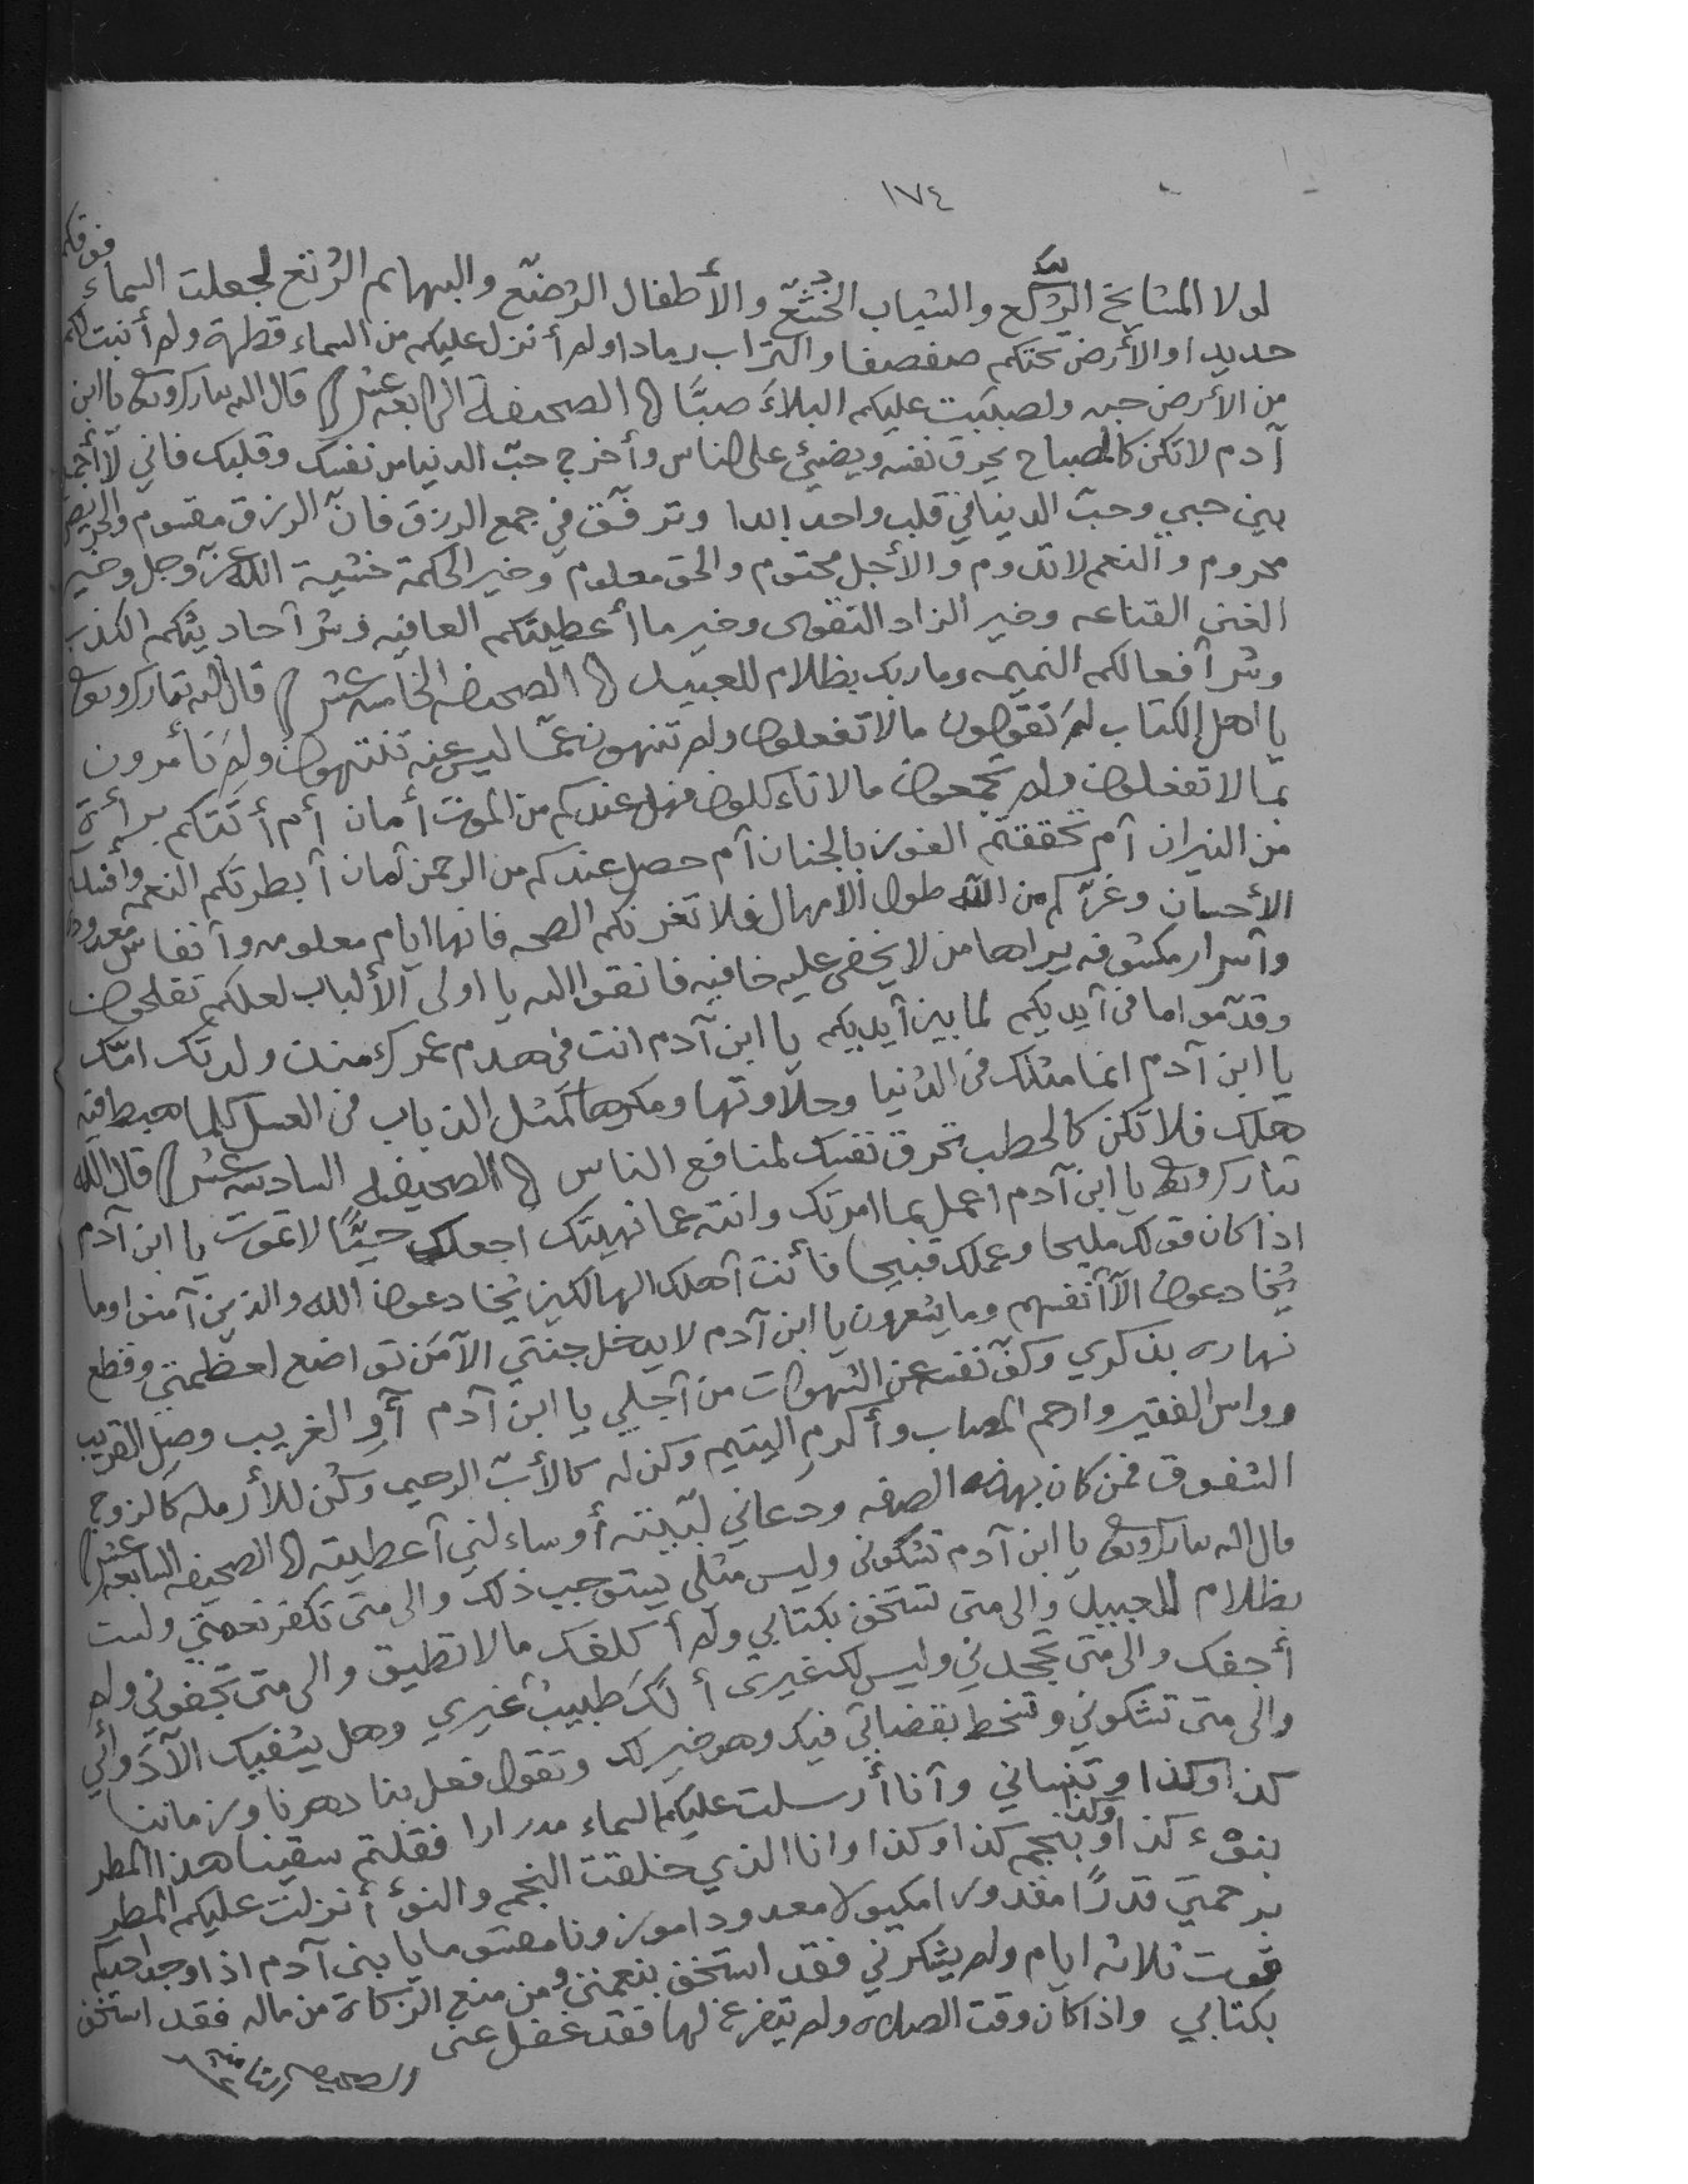 ١٧٤
لولا المشايخ الركع والشباب الخشع والأطفال الرضع والبهايم الرتع لجعلت السماء فوقكم
حديدا والأرض تحتكم صفصفا والتراب رمادا ولم أنزل عليكم من السماء قطرة ولم أنبت لكم
من الأرض حبه ولصببت عليكم البلاءَ صبًّا الصحيفة الرابعة عشر قال الله تبارك وتعالى يا ابن
آدم لا تكن كالمصباح يحرق نفسه ويضيئ على الناس وأخرج حبّ الدنيا من نفسك وقلبك فاني لا أجمع
بين حبي وحبّ الدنيا في قلب واحد ابدا وترفّق في جمع الرزق فانّ الرزق مقسوم والحريص
محروم والنعم لا تدوم والأجل محتوم والحق معلوم وخير الحكمة خشية الله عزّ وجل وخير
الغنى القناعه وخير الزاد التقوى وخير ما أعطيتكم العافيه وشر أحاديثكم الكذب
وشر أفعالكم النميمه وما ربك بظلام للعبيد الصحيفه الخامسه عشر قال الله تبارك وتعالى
يا اهل الكتاب لمَ تقولون ما لا تفعلون ولم تنهون عمّا ليس عنه تنتهون ولِمَ تأمرون
بما لا تفعلون ولم تجمعون ما لا تاءكلون فهل عندكم من الموت أمان أم أتتكم براءة
من النيران أم تحققتم الفوز بالجنان أم حصل عندكم من الرحمن أمان أبطرتكم النعمه وأفسدكم
الأحسان وغرّكم من الله طول الامهال فلا تغرنكم الصحه فانها ايام معلومه وأنفاس معدوده
وأسرار مكشوفه يراها من لا يخفى عليه خافيه فاتقوا الله يا اولى الألباب لعلكم تفلحون
وقدّموا ما في أيديكم لما بين أيديكم يا ابن آدم انت في هدم عمرك منذ ولدتك امّك
يا ابن آدم انما مثلك في الدنيا وحلاوتها ومكرها كمثل الذباب في العسل كلما هبط فيه
هلك فلا تكن كالحطب تحرق نفسك لمنافع الناس الصحيفه السادسه عشر قال الله
تبارك وتعالى يا ابن آدم اعمل بما امرتك وانته عما نهيتك اجعلك حيًّا لا تموت يا ابن آدم
اذا كان قولك مليحا وعملك قبيحا فأنت أهلك الهالكين يُخادعون الله والذين آمنوا وما
يُخادعون الآ أنفسهم وما يشعرون يا ابن آدم لا يدخل جنتي الآمَن تواضع لعظمتي وقطع
نهاره بذكري وكفّ نفسه عن الشهوات من أجلي يا ابن آدم أوِ الغريب وصِل القريب
وواس الفقير وارحم المصاب وأكرمِ اليتيم وكن له كالأب الرحيم وكُن للأرمله كالزوج
الشفوق فمن كان بهذه الصفه ودعاني لبّيته أو ساءلني أعطيته الصحيفه السابعه عشر
قال الله تبارك وتعالى يا ابن آدم تشكوني وليس مثلي يستوجب ذلك والى متى تكفر نعمتي ولست
بظلام للعبيد والى متى تستخف بكتابي ولم أكلفك ما لا تطيق والى متى تجفوني ولم
أجفك والى متى تجحدني وليس لك غيري ألكَ طبيبٌ غيري وهل يشفيك الآ دَوائي
والى متى تشكوني وتسخط بقضائي فيك وهو خير لك وتقول فعل بنا دهرنا وزماننا
كذا وكذا وتنساني وأنا أرسلت عليكم السماء مدرارا فقلتم سقينا هذا المطر
بنوْء كذا وكذا أو بنجم كذا وكذا وانا الذي خلقت النجم والنوْ أنزلت عليكم المطر
برحمتي قدرًا مقدورا مكيولا معدودا موزونا مقسوما يا بني آدم اذا وجد احدكم
قوت ثلاثه ايام ولم يشكرني فقد استخف بنعمتي ومن منع الزكاة من ماله فقد استخف
بكتابي واذا كان وقت الصلاه ولم يتفرغ لها فقد غفل عنى
الصحيفه الثامنه